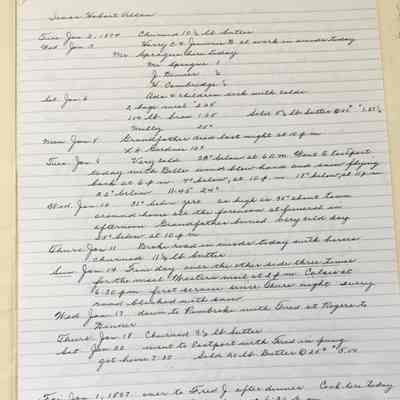 Isaac Hobart Allan
Tues Jan 2, 1894 Churned 10½ lb butter
Wed Jan 3 Harry C & Jimmie B at work in woods today
Mr Sprague here today
Mr Sprague 1
J. ½
H. Cambridge ½
Sat Jan 6 Ada & children sick with colds
2 bags meal 2.05
100 lb. bran 1.05 Sold 5½ lb butter @ 25¢ $1.37½
Molly 25¢
Mon Jan 8 Grandfather died last night at 10 p.m.
L. A. Gardner 10¢
Tues Jan 9 Very cold 28° below at 6 A.M. Went to Eastport
today with Belle wind blew hard and snow flying
back at 6 p.m 7° below, at 10 p.m. 15° below, at 11 p.m
22° below 11:45 24°
Wed. Jan 10 31° below zero as high as 36° about town
around home all the forenoon at funeral in
afternoon. Grandfather buried very cold day
20° below at 10 p.m
Thurs Jan 11 Broke road in woods today with horses
churned 11½ lb butter
Sun Jan 14 Fine day over the other side three times
for the mail Western mail at 3 p.m. Calais at
6:30 p.m. first service since Thurs night every
road blocked with snow.
Wed Jan 17 down to Pembroke with Fred at Rogers to
dinner
Thurs Jan 18 Churned 8½ lb butter
Sat Jan 20 went to Eastport with Fred in pung
got home 7:30 Sold 20 lb. Butter @ 25¢ $5.00
Jan 1, 1897. over to Fred J. after dinner. Cook here today